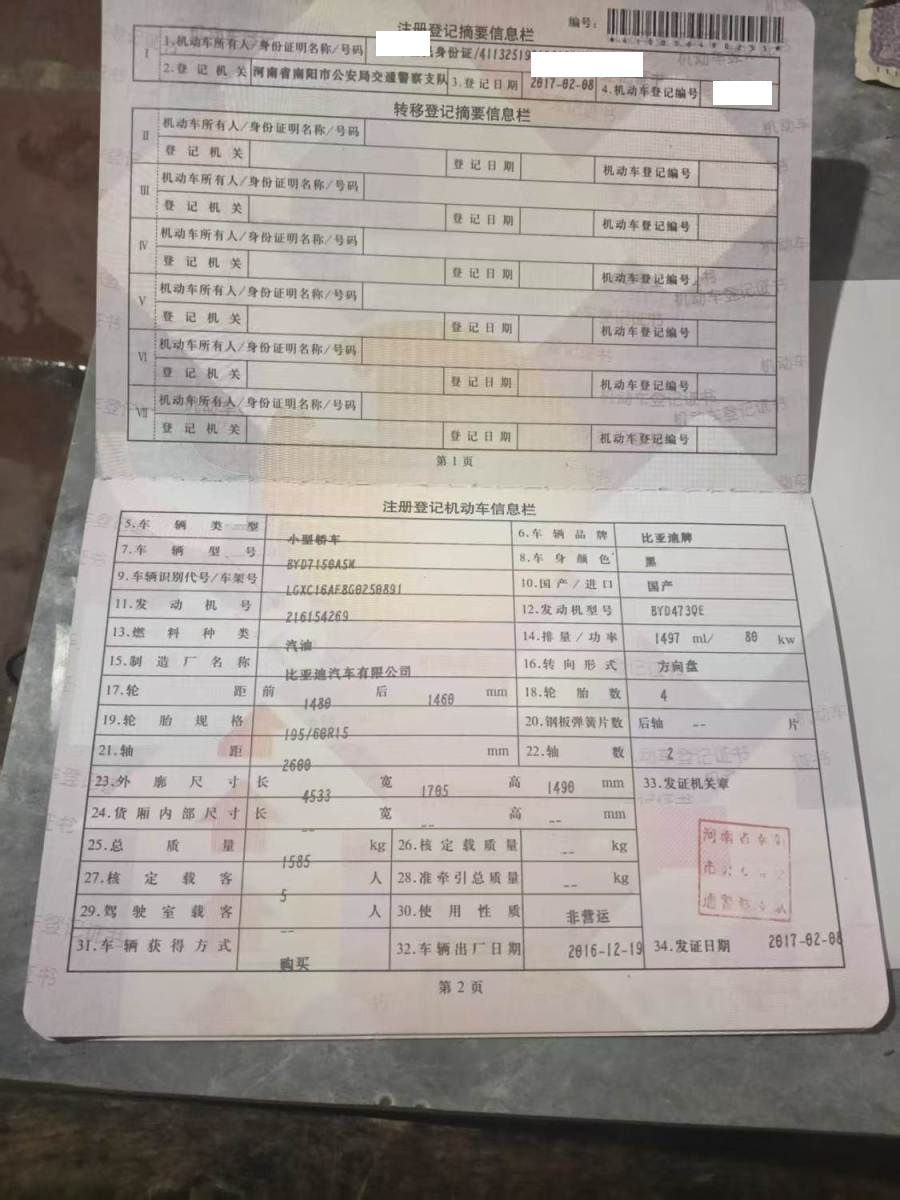 注册登记摘要信息栏
编号:
I
1.机动车所有人/身份证明名称/号码
身份证/41132519
2.登记机关
河南省南阳市公安局交通警察支队
3.登记日期
2017-02-08
4.机动车登记编号
转移登记摘要信息栏
II
机动车所有人/身份证明名称/号码
登记机关
登记日期
机动车登记编号
III
机动车所有人/身份证明名称/号码
登记机关
登记日期
机动车登记编号
IV
机动车所有人/身份证明名称/号码
登记机关
登记日期
机动车登记编号
V
机动车所有人/身份证明名称/号码
登记机关
登记日期
机动车登记编号
VI
机动车所有人/身份证明名称/号码
登记机关
登记日期
机动车登记编号
VII
机动车所有人/身份证明名称/号码
登记机关
登记日期
机动车登记编号
第1页
注册登记机动车信息栏
5.车辆类型 小型轿车 6.车辆品牌 比亚迪牌
7.车辆型号 BYD7150A5M 8.车身颜色 黑
9.车辆识别代号/车架号 LGXC16AF8G0250891 10.国产/进口 国产
11.发动机号 216154269 12.发动机型号 BYD473QE
13.燃料种类 汽油 14.排量/功率 1497 ml/ 80 kw
15.制造厂名称 比亚迪汽车有限公司 16.转向形式 方向盘
17.轮距 前 1480 后 1460 mm 18.轮胎数 4
19.轮胎规格 195/60R15 20.钢板弹簧片数 后轴 -- 片
21.轴距 2600 mm 22.轴数 2
23.外廓尺寸 长 4533 宽 1705 高 1490 mm 33.发证机关章
24.货厢内部尺寸 长 -- 宽 -- 高 -- mm
25.总质量 1585 kg 26.核定载质量 -- kg
27.核定载客 5 人 28.准牵引总质量 -- kg
29.驾驶室载客 -- 人 30.使用性质 非营运
31.车辆获得方式 购买 32.车辆出厂日期 2016-12-19 34.发证日期 2017-02-08
第2页